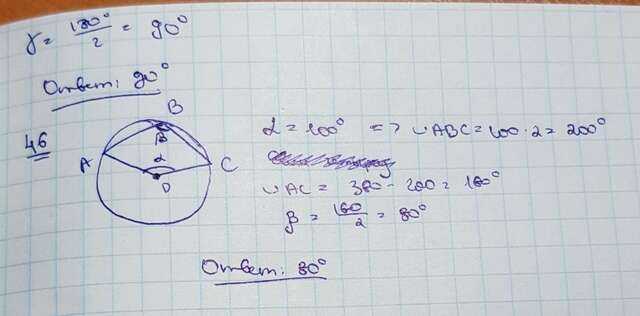 γ = 180°/2 = 90°
Ответ: 90°
46
B
β
α
A
C
O
α = 100° => ∪ABC = 100·2 = 200°
∪AC = 360 - 200 = 160°
β = 160/2 = 80°
Ответ: 80°